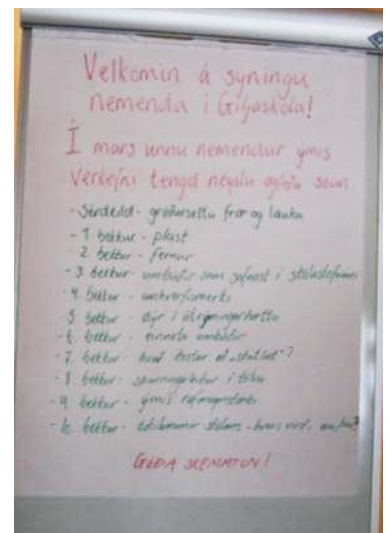 Velkomin á sýningu
nemenda í Giljaskóla!
Í mars unnu nemendur ýmis
verkefni tengd neyslu og
- Sérdeild - gróðursettu fræ og lauka
- 1. bekkur - plast
- 2. bekkur - fernur
- 3. bekkur - umbúðir sem safnast í skólastofunni
- 4. bekkur - umhverfismerki
- 5. bekkur - dýr í útrýmingarhættu
- 6. bekkur - umbúðir
- 7. bekkur - hvað kostar að "
- 8. bekkur - í
- 9. bekkur - ýmis
- 10. bekkur - skólans - hvers virði,
GÓÐA SKEMMTUN!